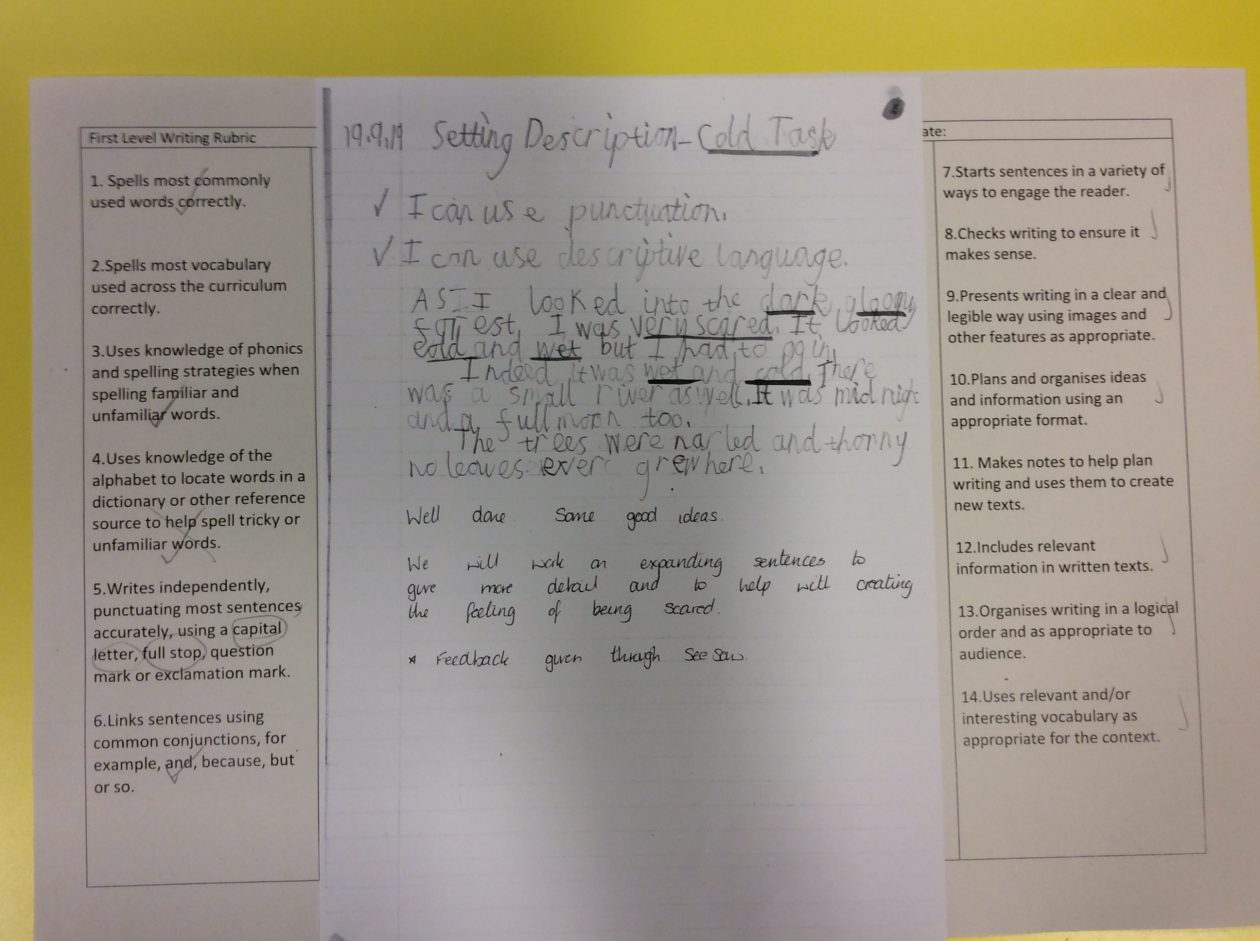 First Level Writing Rubric
1. Spells most commonly
used words correctly.
2.Spells most vocabulary
used across the curriculum
correctly.
3.Uses knowledge of phonics
and spelling strategies when
spelling familiar and
unfamiliar words.
4.Uses knowledge of the
alphabet to locate words in a
dictionary or other reference
source to help spell tricky or
unfamiliar words.
5.Writes independently,
punctuating most sentences
accurately, using a capital
letter, full stop, question
mark or exclamation mark.
6.Links sentences using
common conjunctions, for
example, and, because, but
or so.
19.9.19 Setting Description-Cold Task
✓ I can use punctuation.
✓ I can use descriptive language.
I looked into the dark gloomy
I was very scared. It looked
cold and wet but I had to go in.
Indeed it was wet and cold. There
was a small river aswell. It was mid nigh
and a full moon too.
The trees were narled and thorny
no leaves ever grew here.
Well done. Some good ideas.
We will work on expanding sentences to
give more detail and to help with creating
the feeling of being scared.
* Feedback given through See Saw.
ate:
7.Starts sentences in a variety of
ways to engage the reader.
8.Checks writing to ensure it
makes sense.
9.Presents writing in a clear and
legible way using images and
other features as appropriate.
10.Plans and organises ideas
and information using an
appropriate format.
11. Makes notes to help plan
writing and uses them to create
new texts.
12.Includes relevant
information in written texts.
13.Organises writing in a logical
order and as appropriate to
audience.
14.Uses relevant and/or
interesting vocabulary as
appropriate for the context.